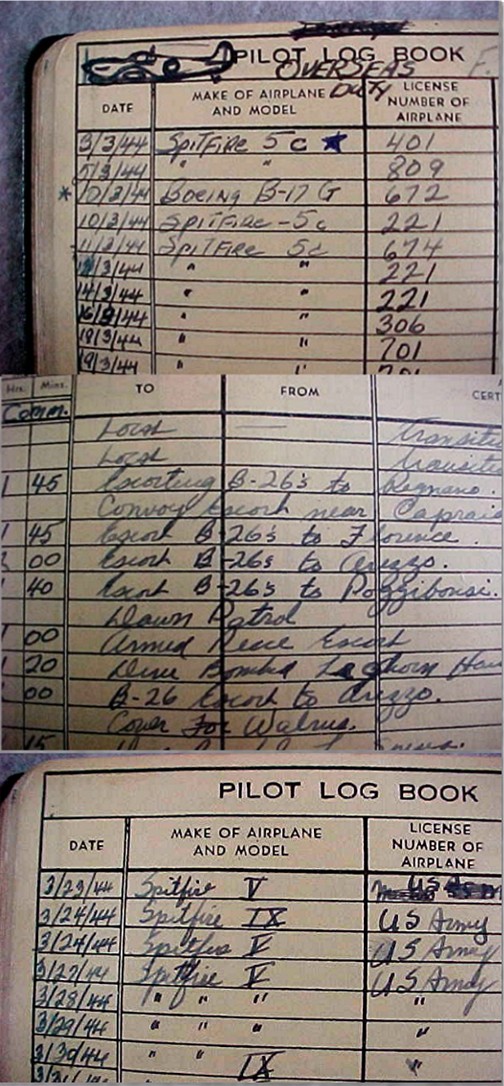 PILOT LOG BOOK
OVERSEAS F.
DUTY
DATE MAKE OF AIRPLANE AND MODEL LICENSE NUMBER OF AIRPLANE
3/3/44 SPITFIRE 5c ★ 401
5/3/44 " " 809
* 10/3/44 BOEING B-17 G 672
10/3/44 SPITFIRE - 5c 221
11/3/44 SPITFIRE 5c 674
/3/44 " " 221
14/3/44 " " 221
16/3/44 " " 306
18/3/44 " " 701
19/3/44 " " 701
Hrs. Mins. TO FROM CERT
Comm.
Local — transit
Local transit
1 45 Escorting B-26's to
Convoy Escort near Caprais
1 45 Escort B-26's to Florence.
2 00 Escort B-26s to Arezzo.
1 40 Escort B-26's to Poggibonsi.
Dawn Patrol
1 00 Armed Recce Escort
1 20 Dive Bombed Leghorn Har
00 B-26 Escort to Arezzo.
Cover For Walrus.
15
PILOT LOG BOOK
DATE MAKE OF AIRPLANE AND MODEL LICENSE NUMBER OF AIRPLANE
3/23/44 Spitfire V US
3/24/44 Spitfire IX US Army
3/24/44 Spitfire V US Army
3/27/44 Spitfire V US Army
3/28/44 " " " "
3/29/44 " " " "
3/30/44 " " IX "
3/31/44